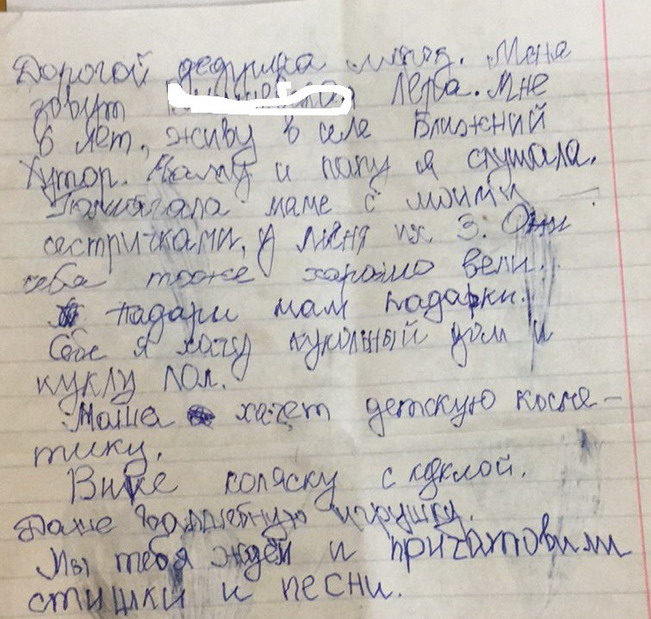 Дорогой дедушка мароз. Меня
зовут Лера. Мне
6 лет, живу в селе Ближний
Хутор. Маму и папу я слушала.
Помагала маме с моими
сестричками, у меня их 3. Они
себа тоже харошо вели.
падари нам падарки.
Себе я хачу кукольный дом и
куклу лол.
Маша хачет детскую косме-
тику.
Вике коляску с куклой.
Даше валшебную игрушку.
Мы тебя ждём и пригатовили
стишки и песни.